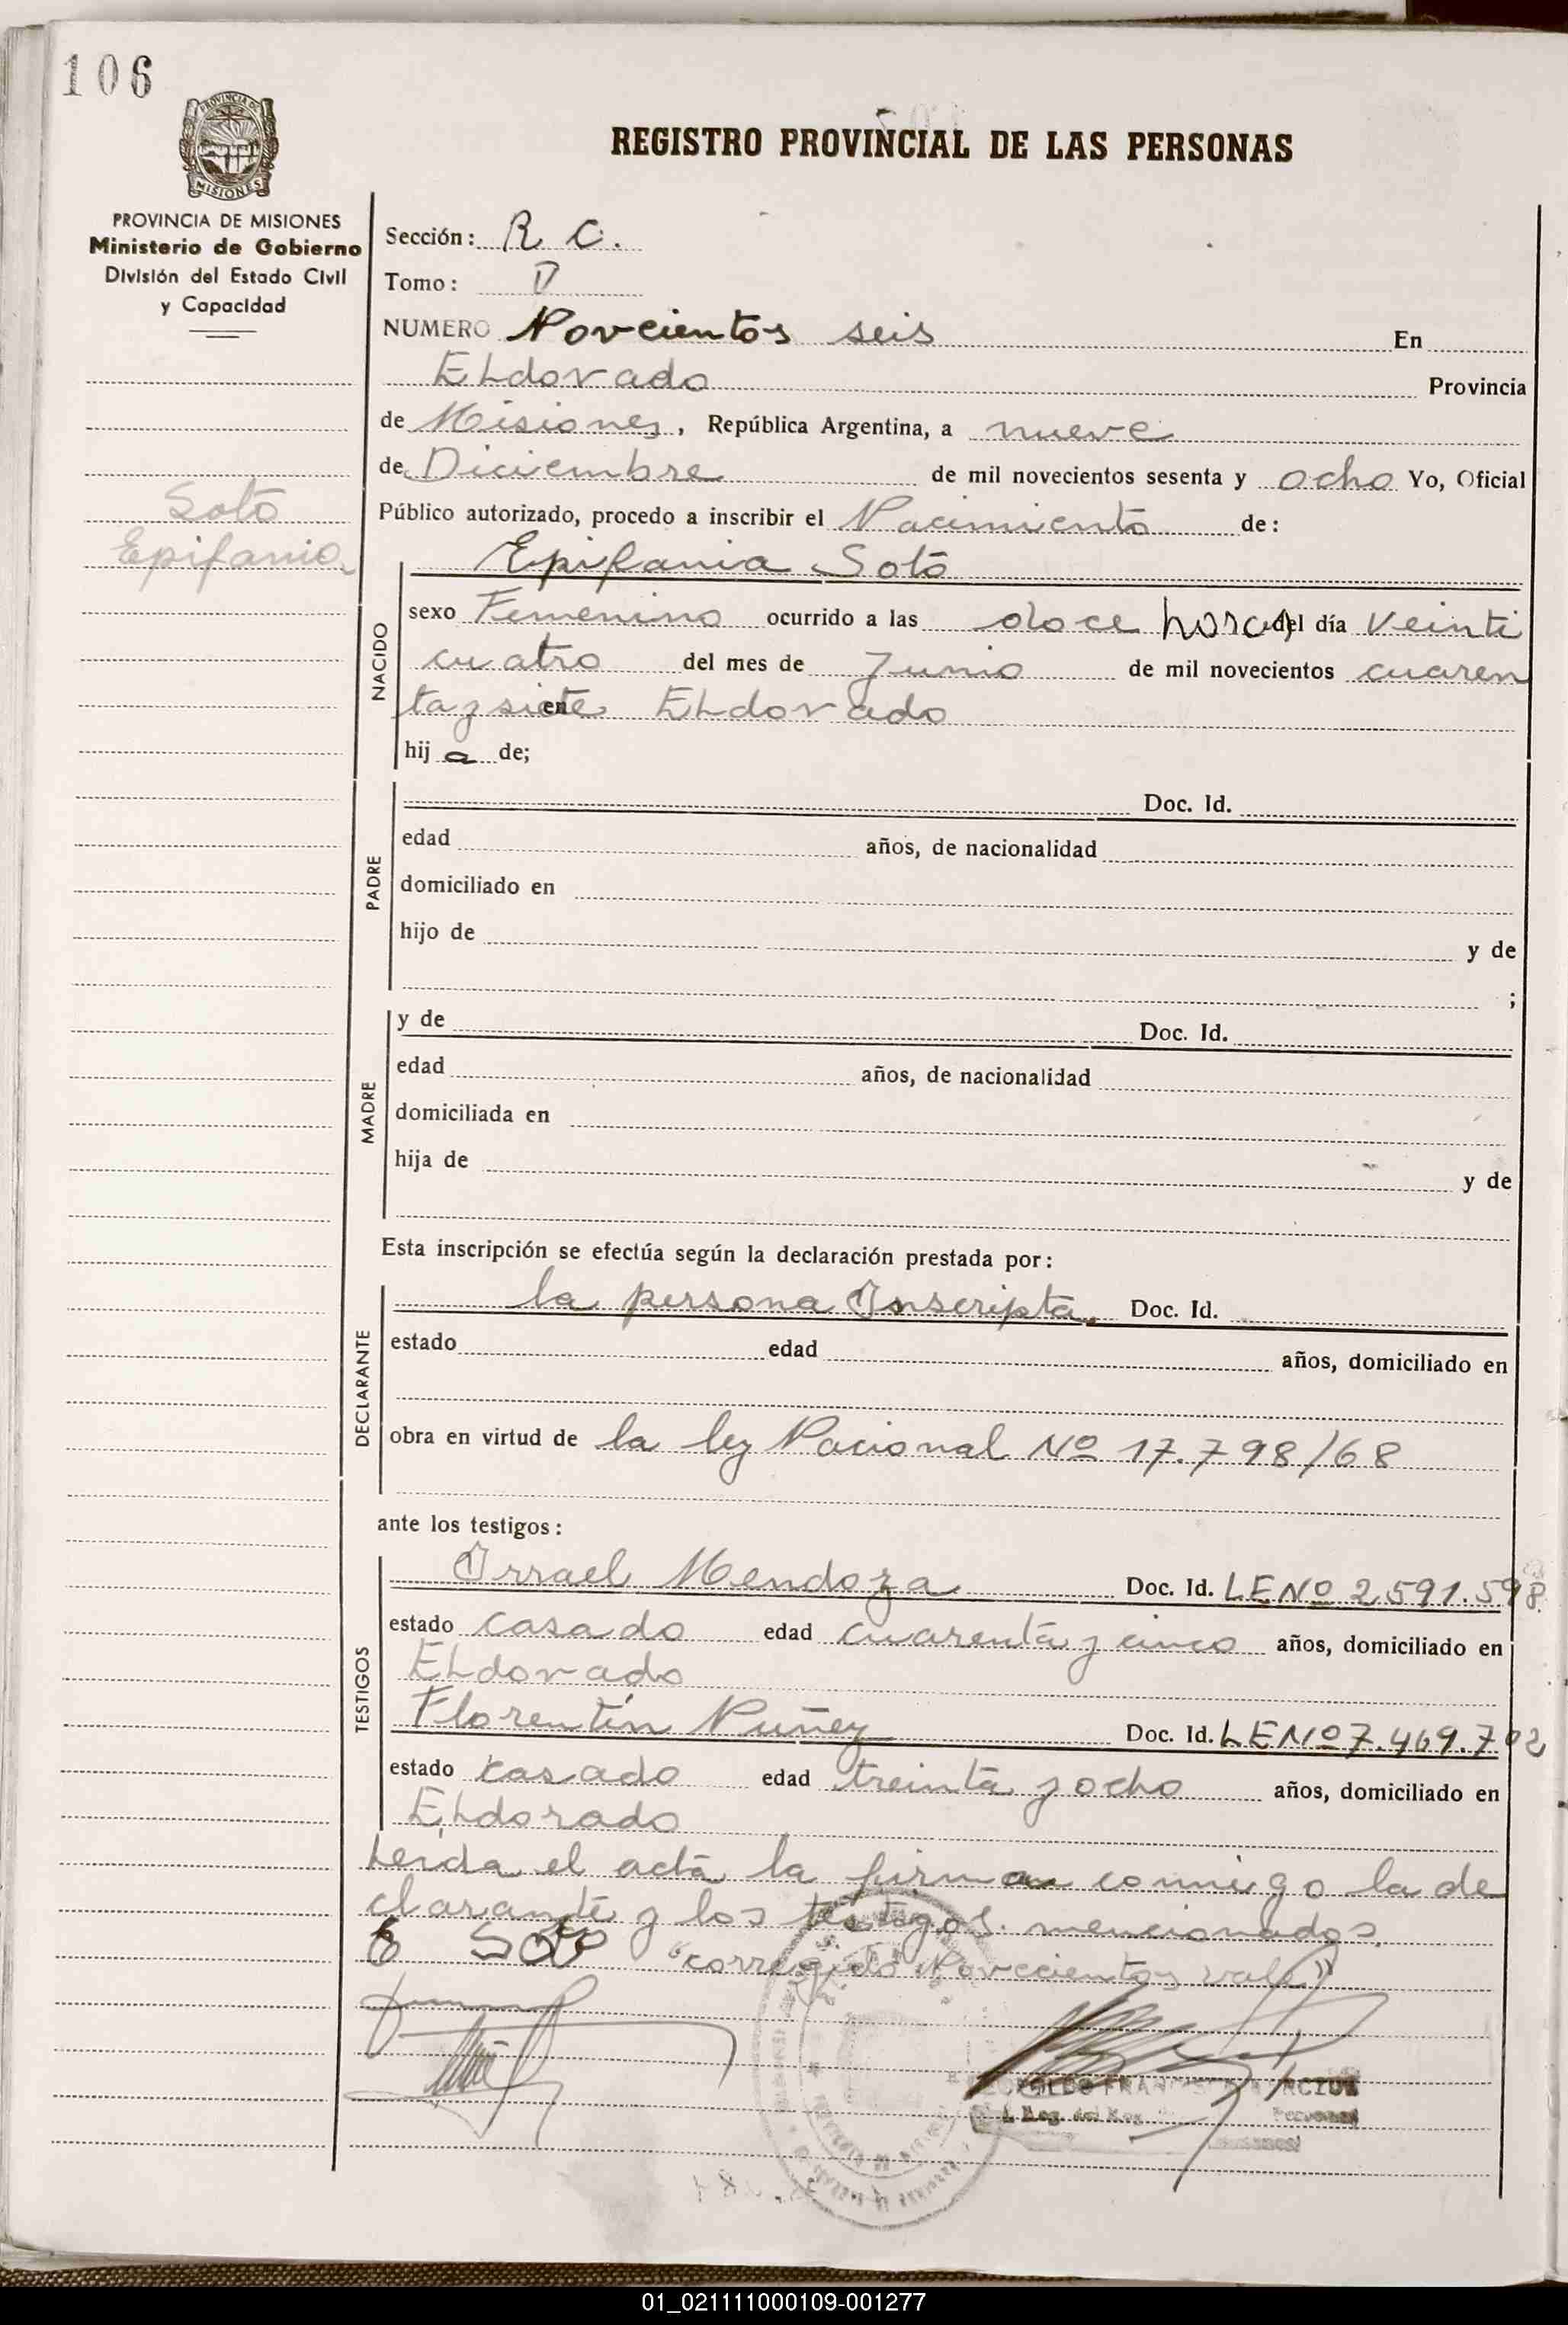 106
PROVINCIA DE
MISIONES
PROVINCIA DE MISIONES
Ministerio de Gobierno
División del Estado Civil
y Capacidad
REGISTRO PROVINCIAL DE LAS PERSONAS
Sección: R C.
Tomo: V
NUMERO Novecientos seis En
ELdorado Provincia
de Misiones, República Argentina, a nueve
de Diciembre de mil novecientos sesenta y ocho Yo, Oficial
Público autorizado, procedo a inscribir el Nacimiento de:
Soto
Epifania
NACIDO
Epifania Soto
sexo Femenino ocurrido a las doce horas del día Veinti
cuatro del mes de Junio de mil novecientos cuaren
ta y siete en ELdorado
hij a de;
PADRE
Doc. Id.
edad años, de nacionalidad
domiciliado en
hijo de y de
;
MADRE
y de Doc. Id.
edad años, de nacionalidad
domiciliada en
hija de y de
Esta inscripción se efectúa según la declaración prestada por:
DECLARANTE
la persona Inscripta Doc. Id.
estado edad años, domiciliado en
obra en virtud de la ley Nacional Nº 17.798/68
ante los testigos:
TESTIGOS
Israel Mendoza Doc. Id. LE Nº 2.591.598
estado casado edad cuarenta y cinco años, domiciliado en
ELdorado
Florentín Nuñez Doc. Id. LE Nº 7.469.702
estado casado edad treinta y ocho años, domiciliado en
ELdorado
Leida el acta la firman conmigo la de
clarante y los testigos mencionados.
E Soto "corregido Novecientos vale"
01_021111000109-001277